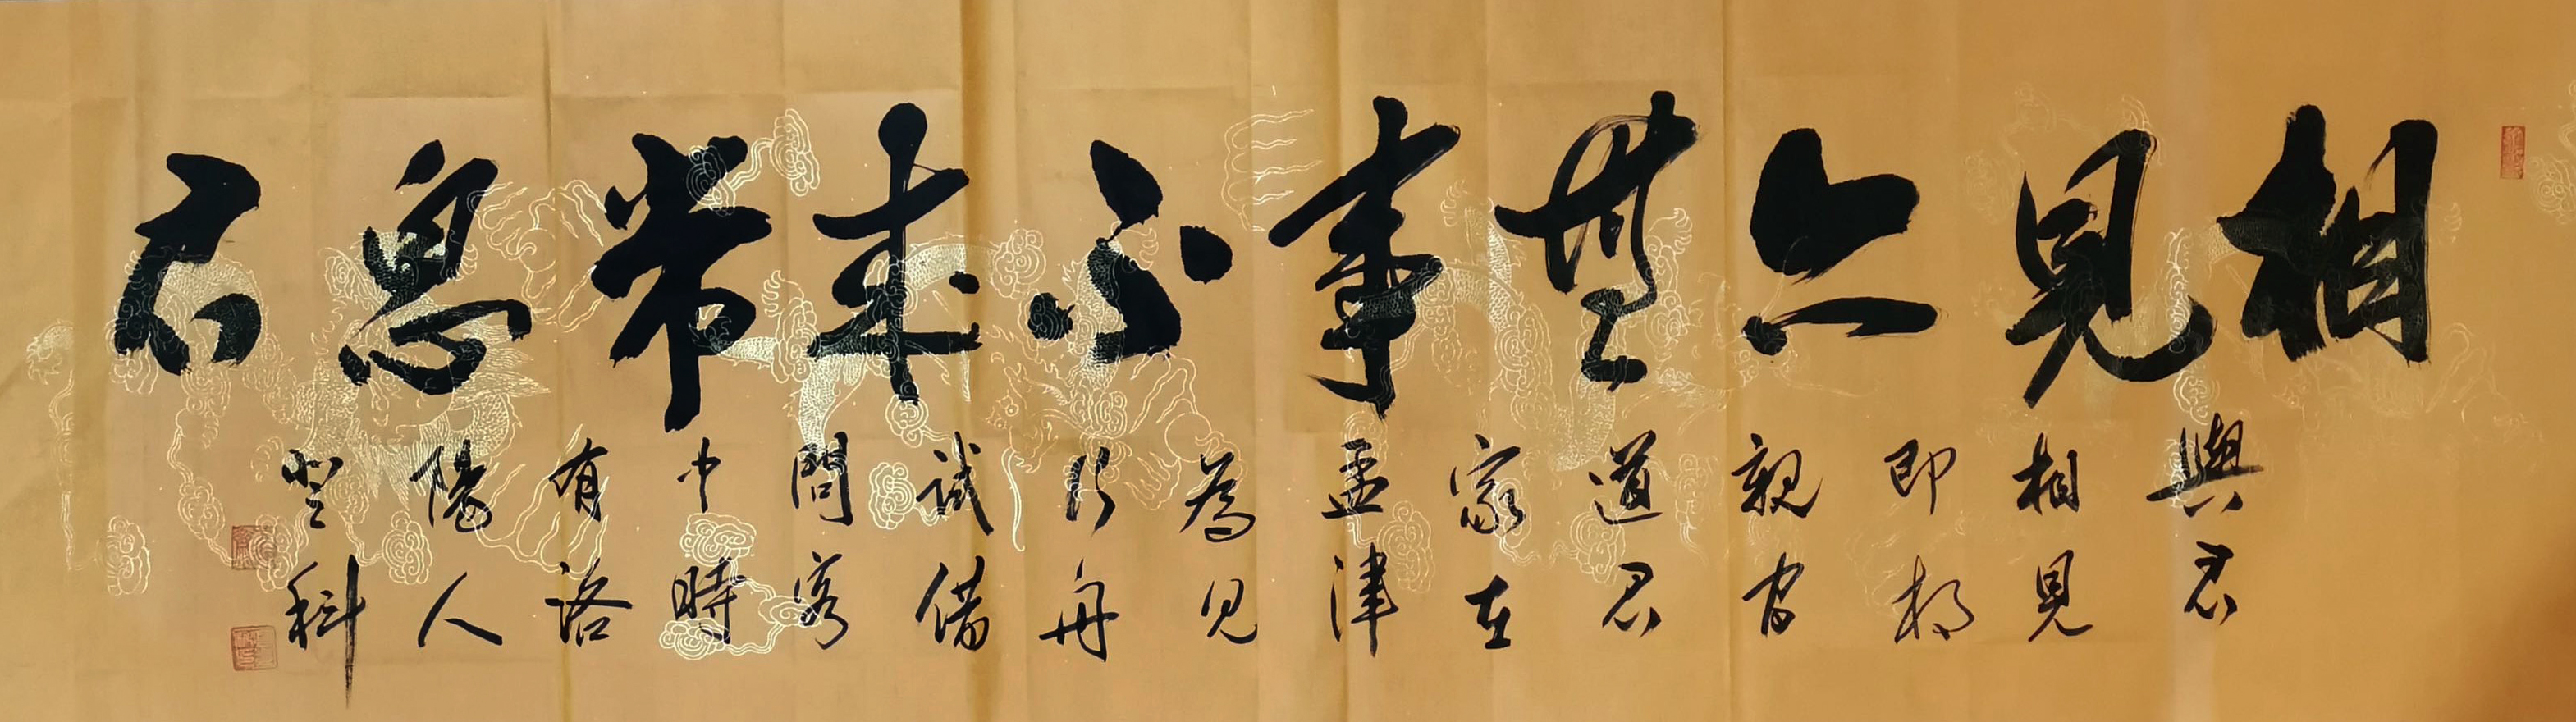 相見亦無事不來常思君
與君
相見
即相
親聞
道君
家在
孟津
為見
行舟
試借
問客
中時
有洛
陽人
登科